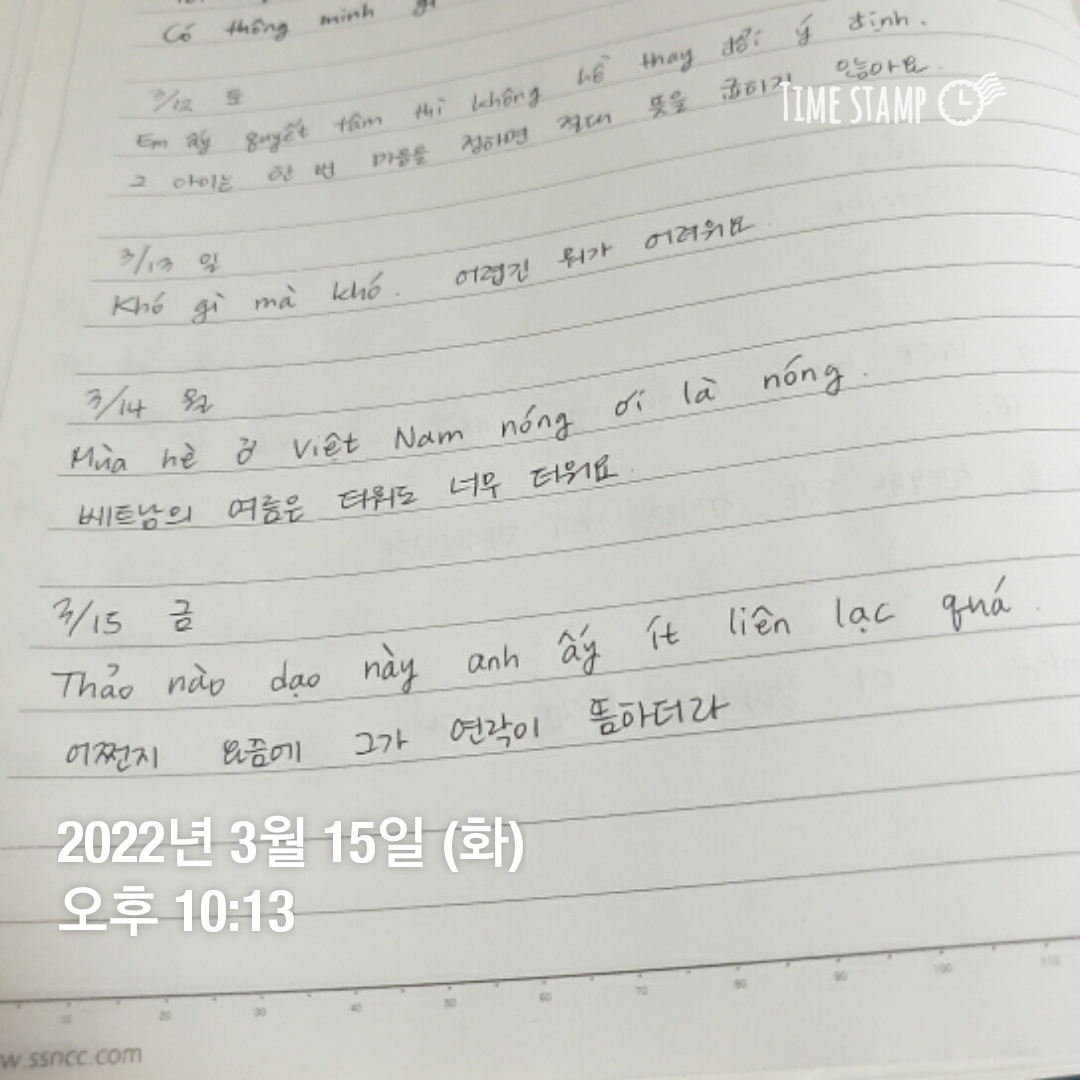 Có thông minh gì
3/12 토
Em ấy quyết tâm thì không hề thay đổi ý định.
그 아이는 한 번 마음을 정하면 절대 뜻을 굽히지 않아요.
TIME STAMP
3/13 일
Khó gì mà khó. 어렵긴 뭐가 어려워요.
3/14 월
Mùa hè ở Việt Nam nóng ơi là nóng.
베트남의 여름은 더워도 너무 더워요.
3/15 금
Thảo nào dạo này anh ấy ít liên lạc quá.
어쩐지 요즘에 그가 연락이 뜸하더라
2022년 3월 15일 (화)
오후 10:13
10 20 30 40 50 60 70 80 90 100 110
w.ssncc.com